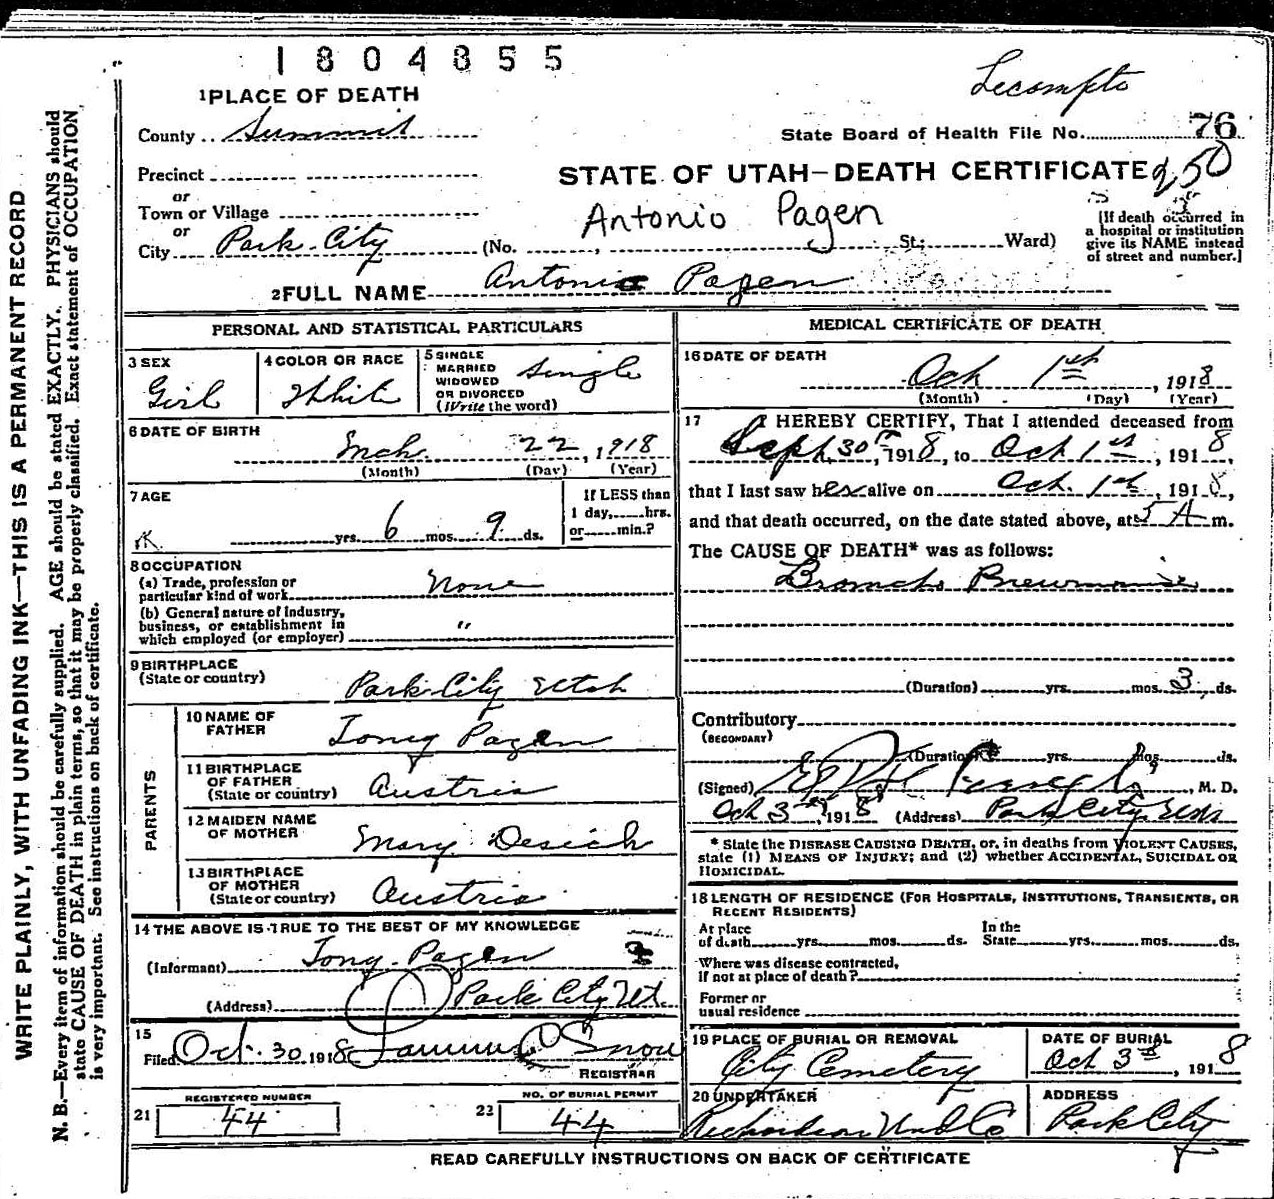 1804855
Lecompto
1 PLACE OF DEATH
County Summit
State Board of Health File No. 76
Precinct
STATE OF UTAH—DEATH CERTIFICATE 250
or
Town or Village
Antonio Pagen
or
City Park City (No. , St.; Ward)
[If death occurred in
a hospital or institution
give its NAME instead
of street and number.]
2 FULL NAME Antonio Pagen
PERSONAL AND STATISTICAL PARTICULARS
3 SEX
Girl
4 COLOR OR RACE
White
5 SINGLE
MARRIED
WIDOWED
OR DIVORCED
(Write the word)
Single
6 DATE OF BIRTH
Mch. 22, 1918
(Month) (Day) (Year)
7 AGE
yrs. 6 mos. 9 ds.
If LESS than
1 day, hrs.
or min.?
8 OCCUPATION
(a) Trade, profession or
particular kind of work None
(b) General nature of industry,
business, or establishment in
which employed (or employer) "
9 BIRTHPLACE
(State or country)
Park City Utah
PARENTS
10 NAME OF
FATHER
Tony Pagen
11 BIRTHPLACE
OF FATHER
(State or country)
Austria
12 MAIDEN NAME
OF MOTHER
Mary Desich
13 BIRTHPLACE
OF MOTHER
(State or country)
Austria
14 THE ABOVE IS TRUE TO THE BEST OF MY KNOWLEDGE
(Informant) Tony Pagen
(Address) Park City Ut.
15
Filed Oct. 30 1918 Snow
REGISTRAR
REGISTERED NUMBER
21 44
NO. OF BURIAL PERMIT
22 44
MEDICAL CERTIFICATE OF DEATH
16 DATE OF DEATH
Oct 1st, 1918
(Month) (Day) (Year)
17 I HEREBY CERTIFY, That I attended deceased from
Sept 30th, 1918, to Oct 1st, 1918,
that I last saw her alive on Oct. 1st, 1918,
and that death occurred, on the date stated above, at 5 A m.
The CAUSE OF DEATH* was as follows:
Broncho Pneumonia
(Duration) yrs. mos. 3 ds.
Contributory
(SECONDARY)
(Duration) yrs. mos. ds.
(Signed) M. D.
Oct 3rd, 1918 (Address) Park City Utah
* State the DISEASE CAUSING DEATH, or, in deaths from VIOLENT CAUSES,
state (1) MEANS OF INJURY; and (2) whether ACCIDENTAL, SUICIDAL OR
HOMICIDAL.
18 LENGTH OF RESIDENCE (FOR HOSPITALS, INSTITUTIONS, TRANSIENTS, OR
RECENT RESIDENTS)
At place
of death yrs. mos. ds.
In the
State yrs. mos. ds.
Where was disease contracted,
if not at place of death?
Former or
usual residence
19 PLACE OF BURIAL OR REMOVAL
City Cemetery
DATE OF BURIAL
Oct 3rd, 1918
20 UNDERTAKER
Richardson Und Co
ADDRESS
Park City
READ CAREFULLY INSTRUCTIONS ON BACK OF CERTIFICATE
WRITE PLAINLY, WITH UNFADING INK—THIS IS A PERMANENT RECORD
N. B.—Every item of information should be carefully supplied. AGE should be stated EXACTLY. PHYSICIANS should
state CAUSE OF DEATH in plain terms, so that it may be properly classified. Exact statement of OCCUPATION
is very important. See instructions on back of certificate.